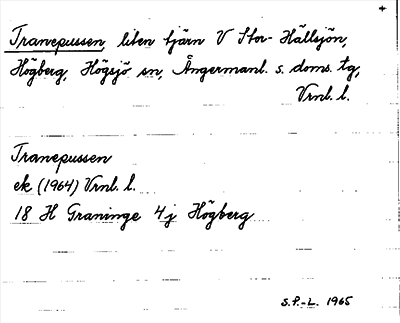 Tranepussen, liten tjärn V Stor-Hällsjön,
Högberg, Högsjö sn, Ångermanl. s. doms. tg,
Vrnl. l.
Tranepussen
ek (1964) Vrnl. l.
18 H Graninge 4j Högberg
S.P.-L. 1965